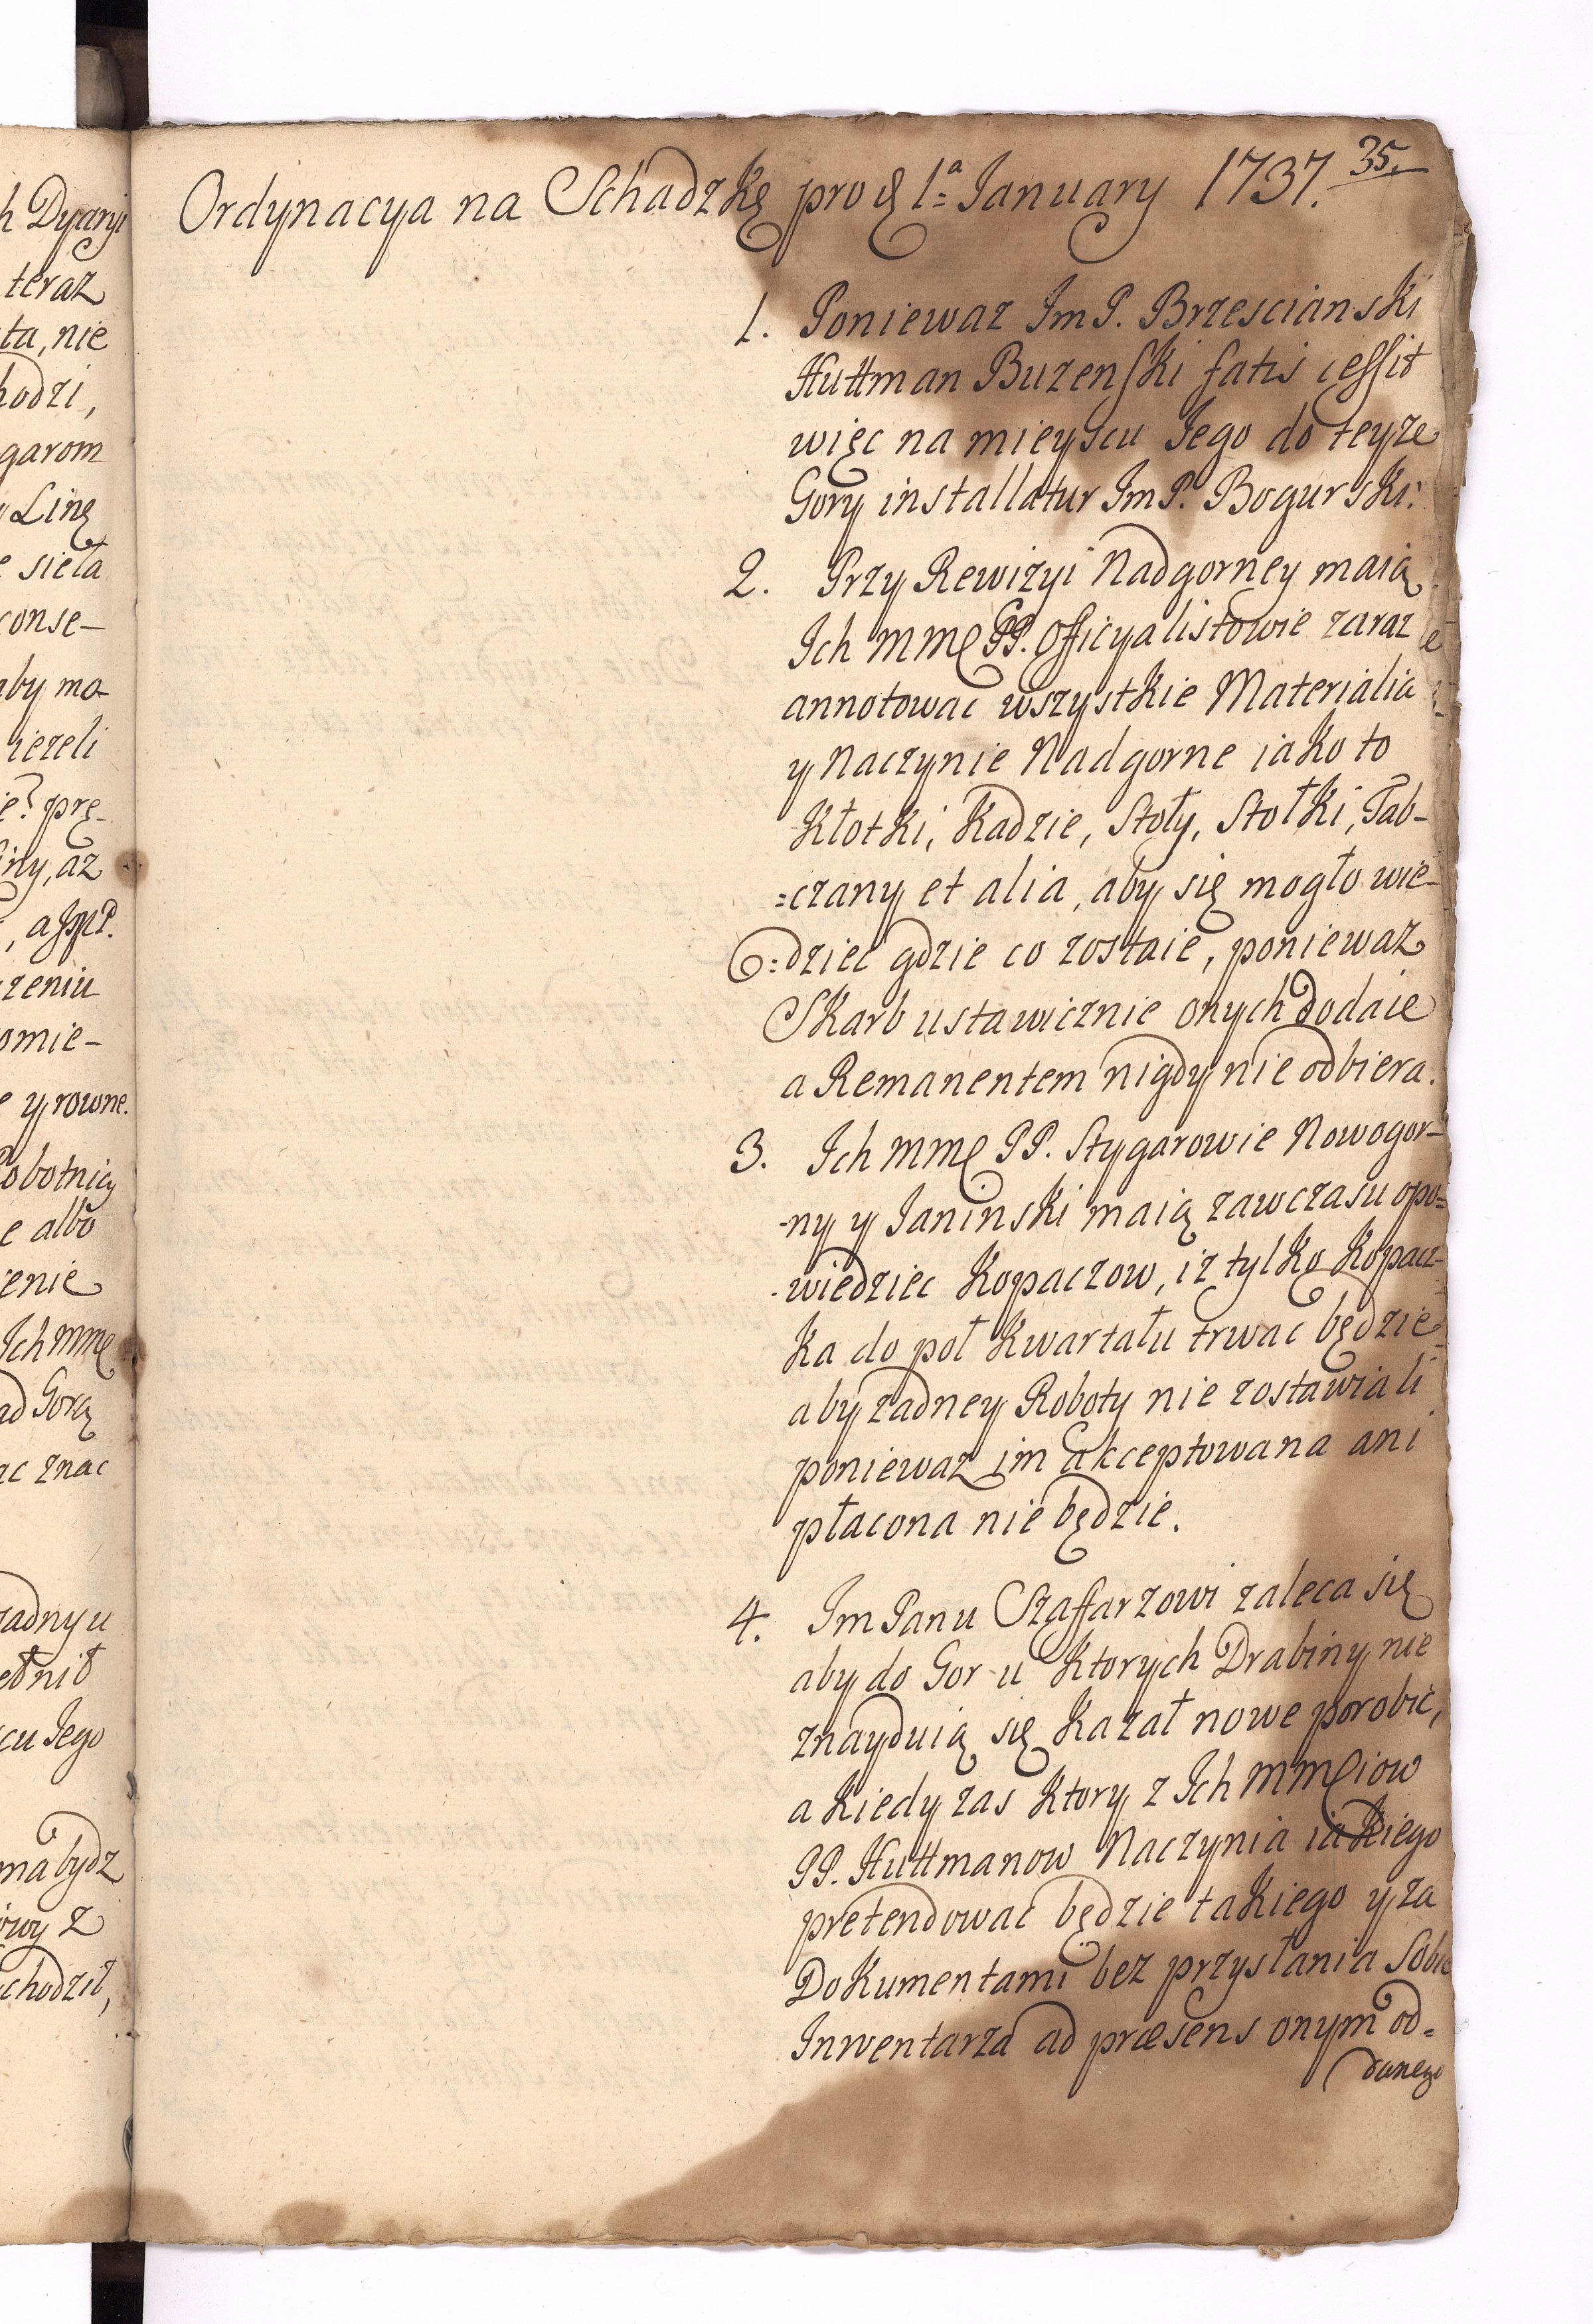 h Dyaryi
teraz
ta, nie
hodzi,
garom
Linę
sieła
conse-
aby mo-
iezeli
prę-
iny, az
zeniu
omie-
y rowne.
obotnicy
e albo
enie
Ich mmę
ad Gorą
ac znac
zadny u
ełnił
cu Jego
ma bydz
z
chodził,
35.
Ordynacya na Schadzkę pro d 1ª January 1737.
1. Poniewaz ImP. Brzescianski
Huttman Buzenski fatis cessit
więc na mieyscu Jego do teyze
Gory installatur ImP. Bogurski.
2. Przy Rewizyi Nadgorney maią
Ich mmę PP. Officyalistowie zaraz
annotowac wszystkie Materialia
y Naczynie Nadgorne iako to
Kłotki, Kadzie, Stoły, Stołki, Tab-
=czany et alia, aby się mogło wie-
=dziec gdzie co zostaie, poniewaz
Skarb ustawicznie onych dodaie
a Remanentem nigdy nie odbiera.
3. Ich mmę PP. Stygarowie Nowogor-
-ny y Janinski maią zawczasu opo=
-wiedziec Kopaczow, iz tylko Kopacz-
ka do poł Kwartału trwac będzie
aby zadney Roboty nie zostawiali
poniewaz im akceptowana ani
płacona nie będzie.
4. Im Panu Szaffarzowi zaleca się
aby do Gor u Ktorych Drabiny nie
znayduią się Kazał nowe porobic,
a Kiedy zas Ktory z Ich mmęiow
PP. Huttmanow Naczynia iakiego
pretendowac będzie takiego y za
Dokumentami bez przysłania Sobie
Inwentarza ad præsens onym od=
danego